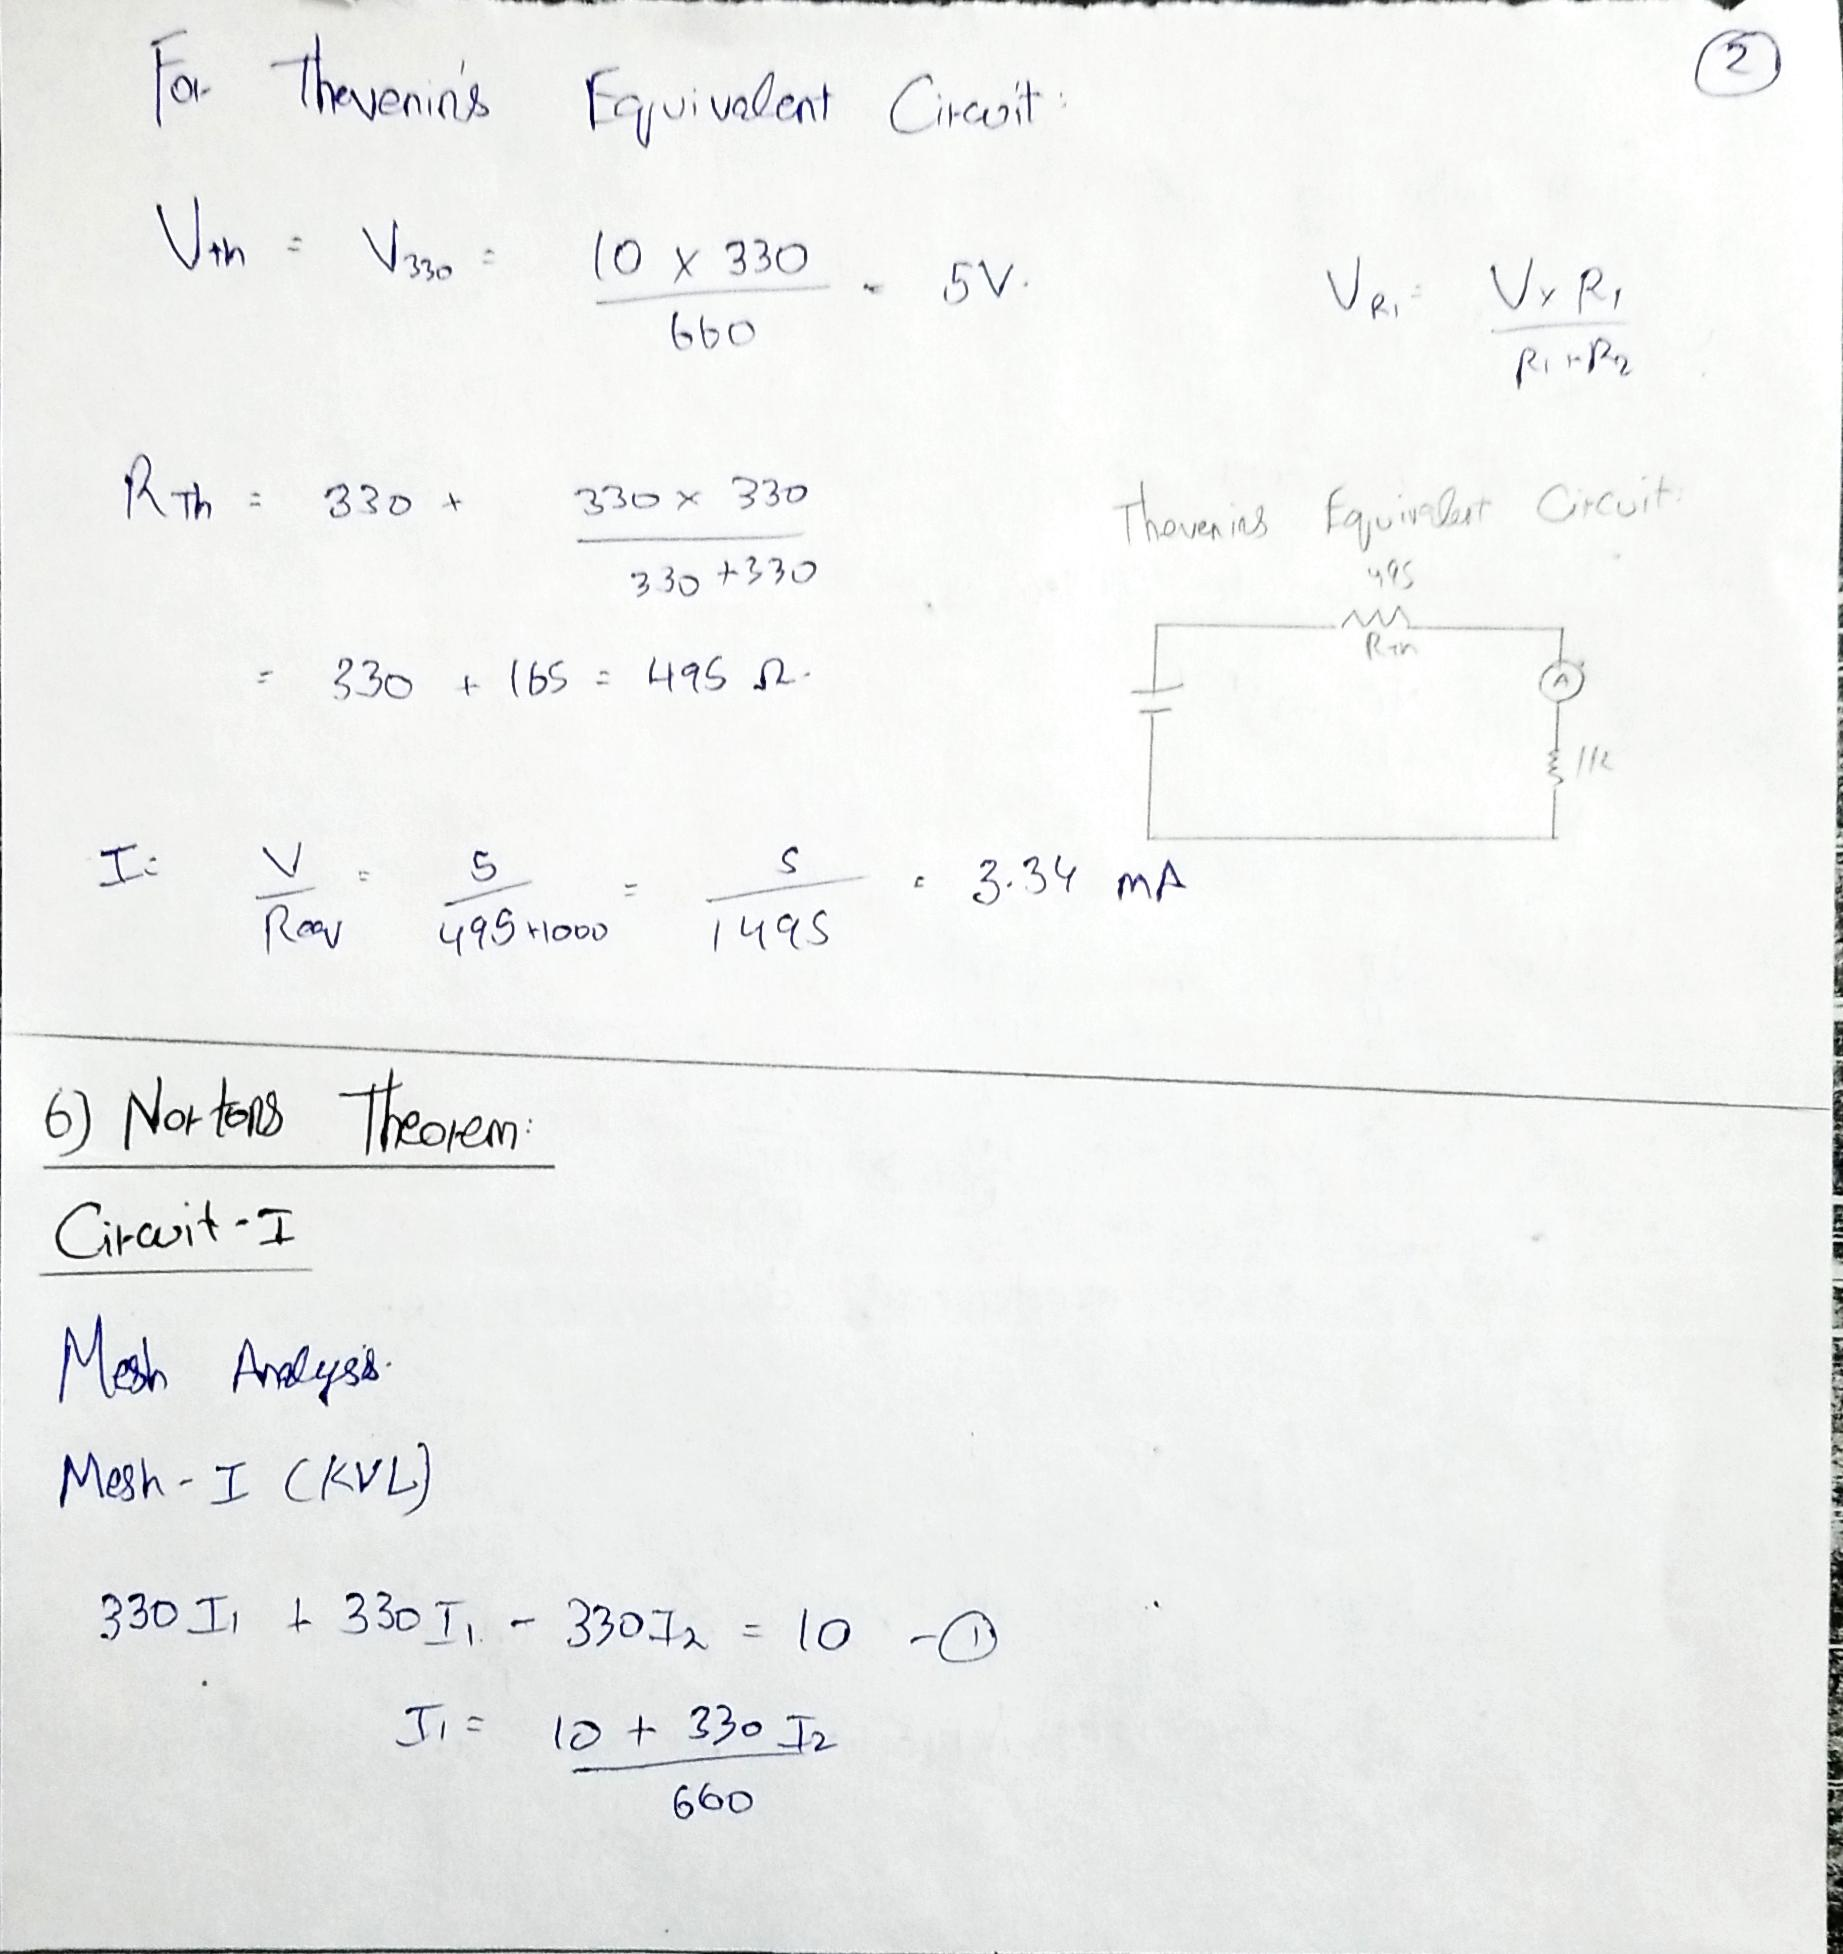 2
For Thevenin's Equivalent Circuit:
Vth = V330 = 10 x 330 / 660 = 5V.
VR1 = V x R1 / R1 + R2
RTh = 330 + 330 x 330 / 330 + 330
= 330 + 165 = 495 Ω.
Thevenins Equivalent Circuit:
495
RTh
A
1k
I = V / Req = 5 / 495+1000 = 5 / 1495 = 3.34 mA
6) Nortons Theorem:
Circuit - I
Mesh Analysis.
Mesh - I (KVL)
330 I1 + 330 I1 - 330 I2 = 10 - ①
I1 = 10 + 330 I2 / 660